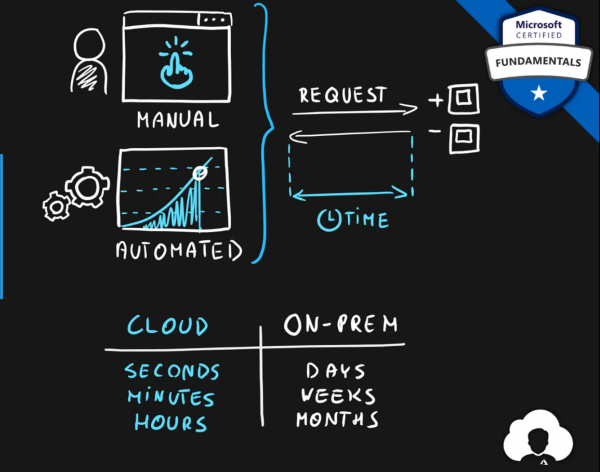 Microsoft
CERTIFIED
FUNDAMENTALS
MANUAL
REQUEST
+
-
TiME
AUTOMATED
CLOUD ON-PREM
SECONDS DAYS
MiNUTES WEEKS
HOURS MONTHS